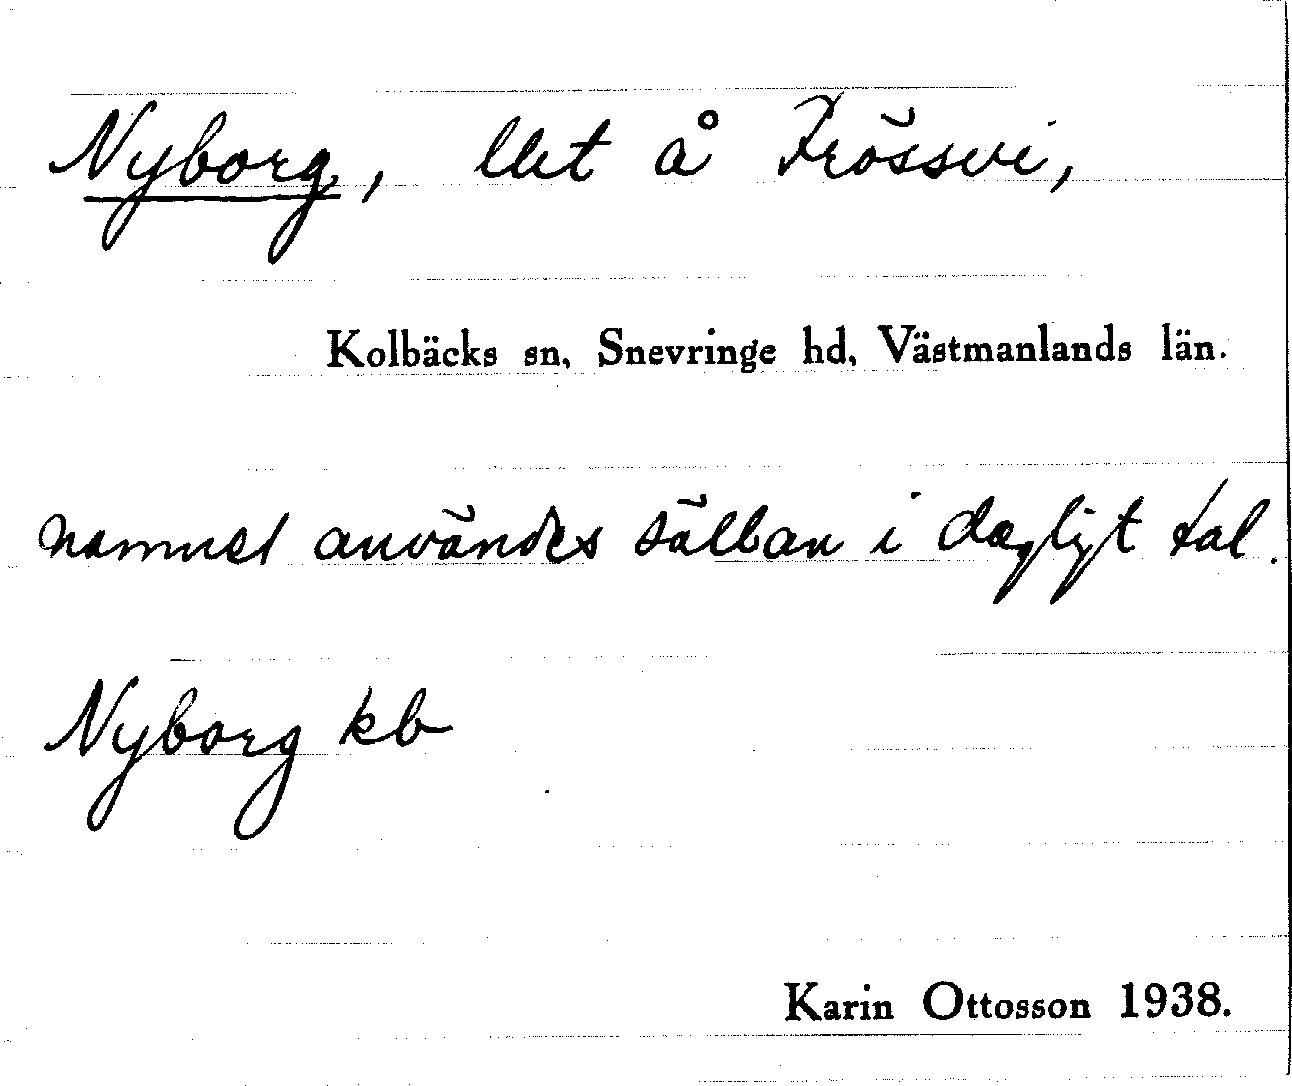 Nyborg, lht å Frössvi,
Kolbäcks sn, Snevringe hd, Västmanlands län.
namnet användes sällan i dagligt tal.
Nyborg kb
Karin Ottosson 1938.